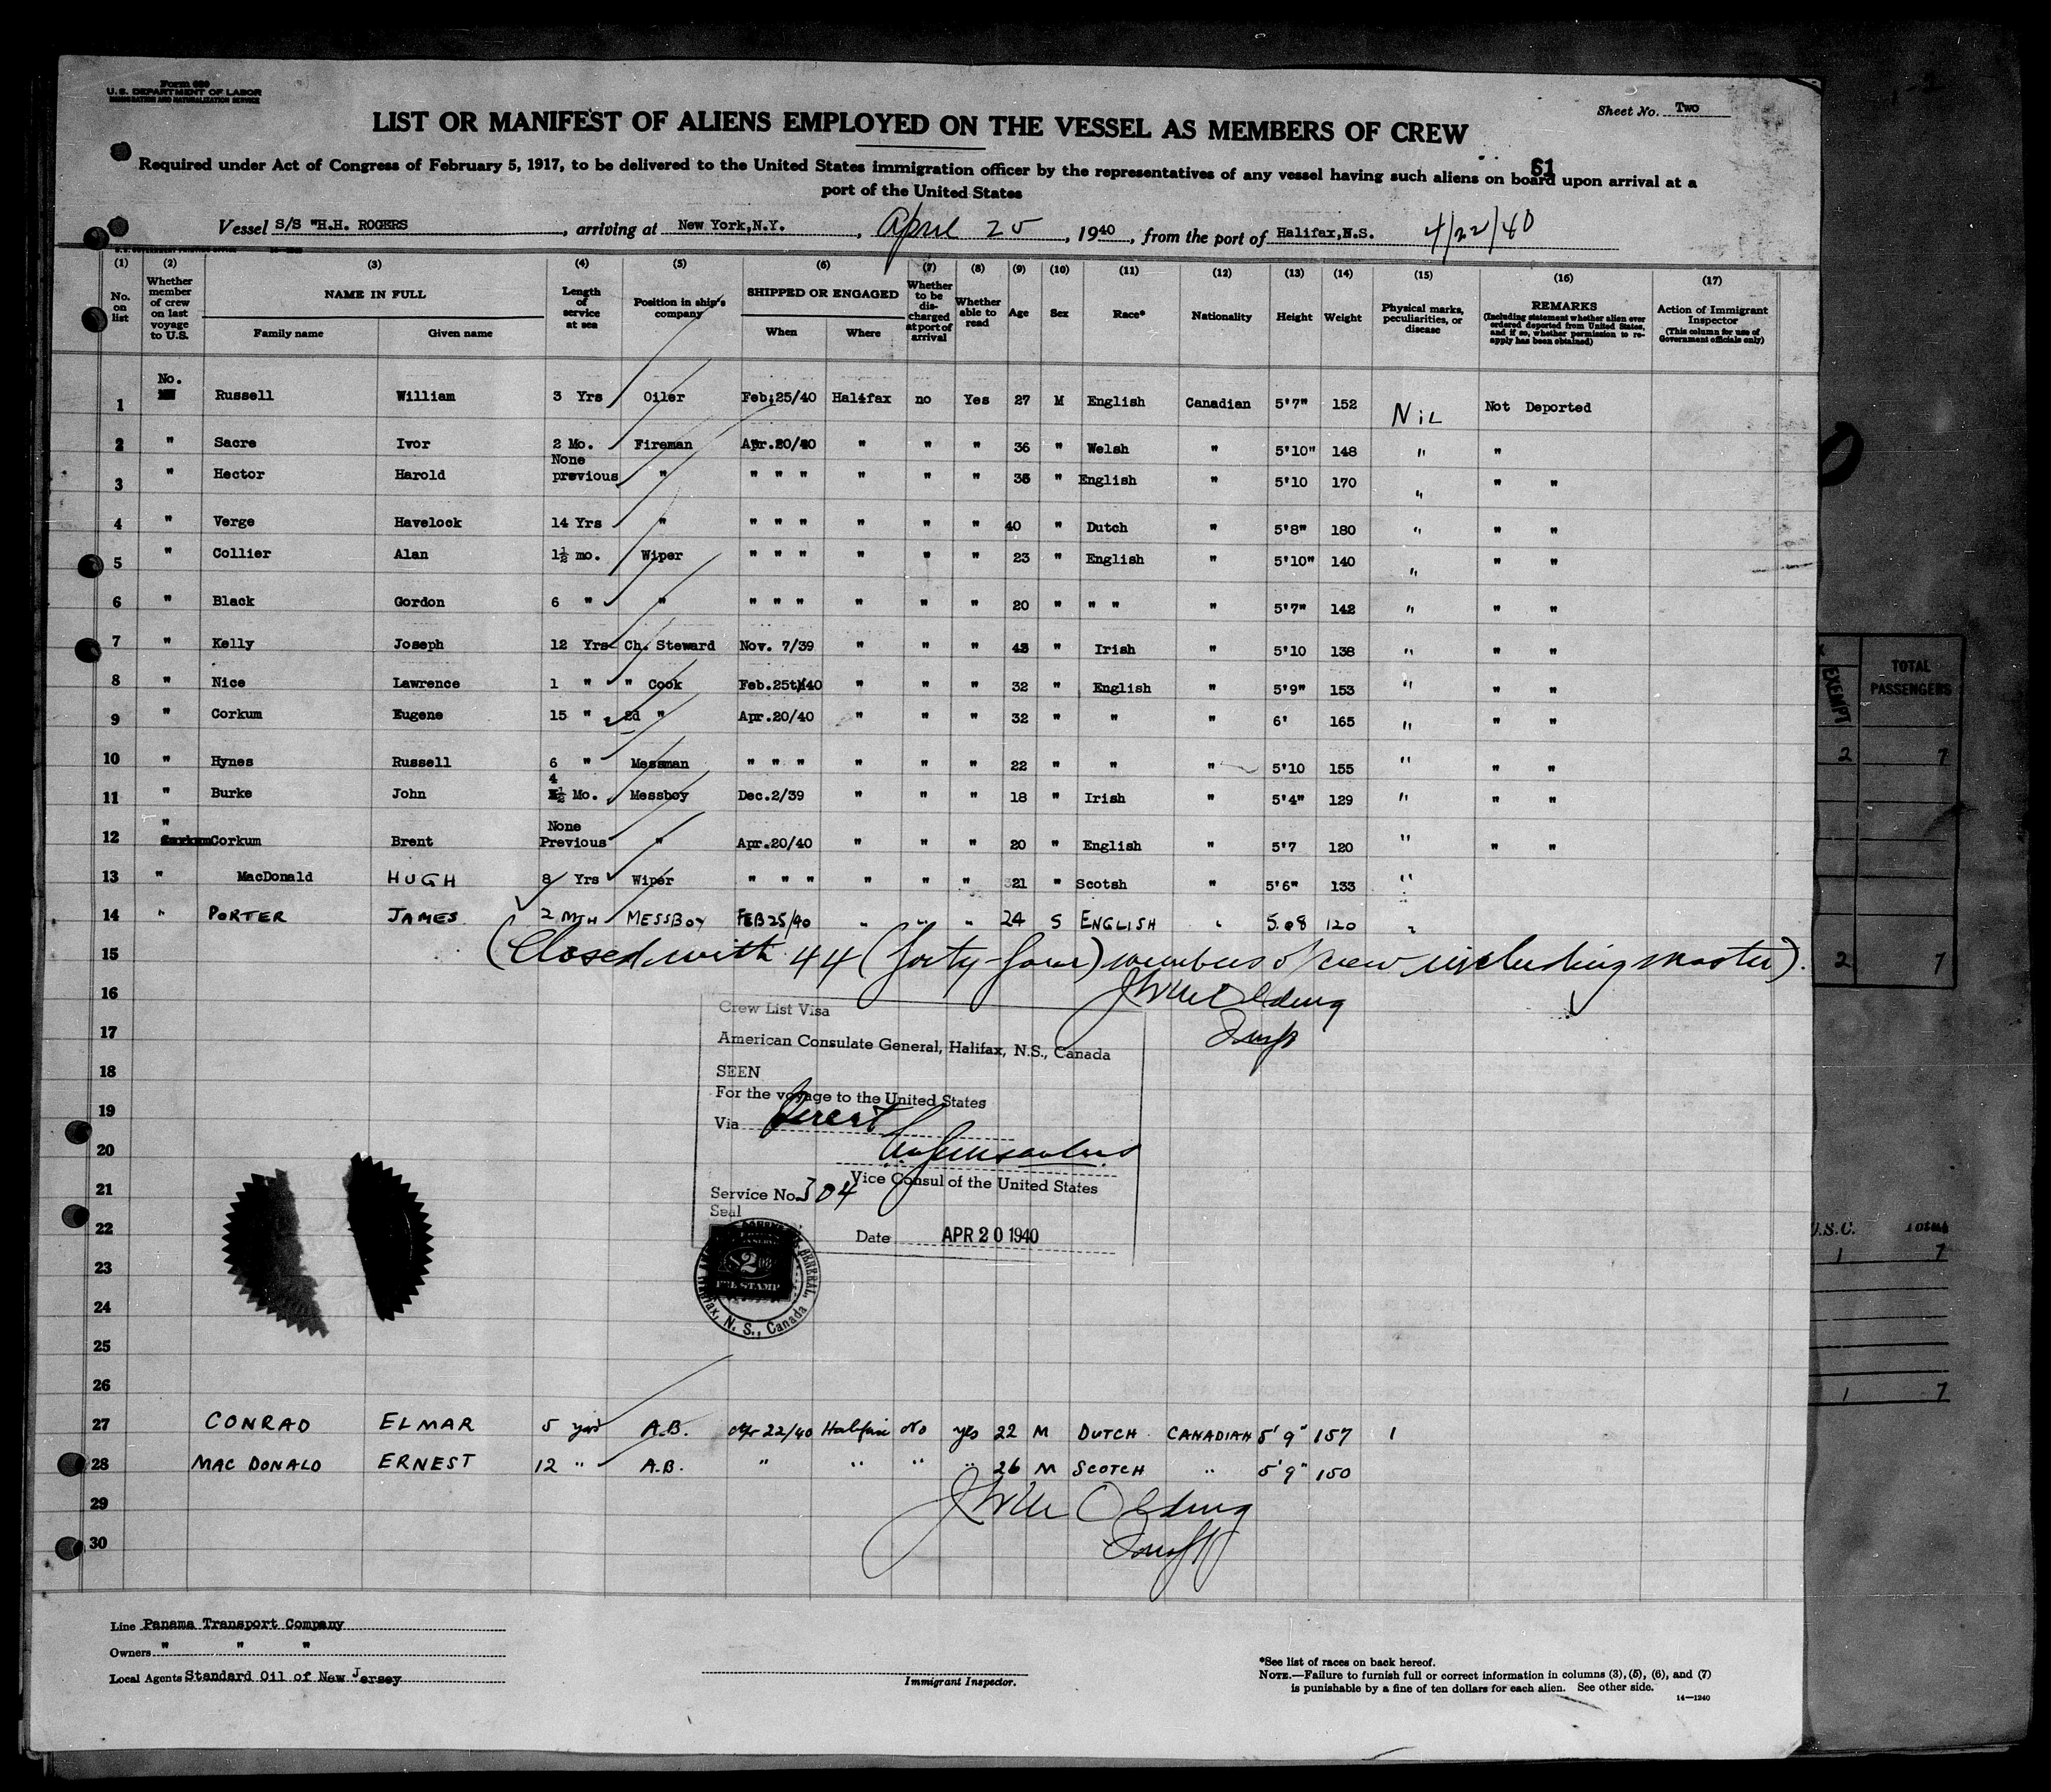 Form 680
U. S. DEPARTMENT OF LABOR
IMMIGRATION AND NATURALIZATION SERVICE
Sheet No. Two
LIST OR MANIFEST OF ALIENS EMPLOYED ON THE VESSEL AS MEMBERS OF CREW
61
Required under Act of Congress of February 5, 1917, to be delivered to the United States immigration officer by the representatives of any vessel having such aliens on board upon arrival at a
port of the United States
Vessel S/S "H.H. ROGERS , arriving at New York,N.Y. , April 25 , 1940 , from the port of Halifax,N.S. 4/22/40
(1) (2) (3) (4) (5) (6) (7) (8) (9) (10) (11) (12) (13) (14) (15) (16) (17)
No. on list
Whether member of crew on last voyage to U.S.
NAME IN FULL
Family name Given name
Length of service at sea
Position in ship's company
SHIPPED OR ENGAGED
When Where
Whether to be discharged at port of arrival
Whether able to read
Age
Sex
Race*
Nationality
Height
Weight
Physical marks, peculiarities, or disease
REMARKS
(Including statement whether alien ever ordered deported from United States, and if so, whether permission to reapply has been obtained)
Action of Immigrant Inspector
(This column for use of Government officials only)
1 No. Russell William 3 Yrs Oiler Feb.25/40 Halifax no Yes 27 M English Canadian 5'7" 152 Nil Not Deported
2 " Sacre Ivor 2 Mo. Fireman Apr.20/40 " " " 36 " Welsh " 5'10" 148 " "
3 " Hector Harold None previous " " " " " " " 35 " English " 5'10 170 " " "
4 " Verge Havelock 14 Yrs " " " " " " " 40 " Dutch " 5'8" 180 " " "
5 " Collier Alan 1½ mo. Wiper " " " " " " 23 " English " 5'10" 140 " " "
6 " Black Gordon 6 " " " " " " " " 20 " " " " 5'7" 142 " " "
7 " Kelly Joseph 12 Yrs Ch. Steward Nov. 7/39 " " " 43 " Irish " 5'10 138 " " "
8 " Nice Lawrence 1 " " Cook Feb.25th/40 " " " 32 " English " 5'9" 153 " " "
9 " Corkum Eugene 15 " 2d " Apr.20/40 " " " 32 " " " 6' 165 " " "
10 " Hynes Russell 6 " Messman " " " " " " 22 " " " 5'10 155 " " "
11 " Burke John 4½ Mo. Messboy Dec.2/39 " " " 18 " Irish " 5'4" 129 " " "
12 " Corkum Brent None Previous " Apr.20/40 " " " 20 " English " 5'7 120 " " "
13 " MacDonald HUGH 8 Yrs Wiper " " " " " " 21 " Scotsh " 5'6" 133 "
14 " PORTER JAMES 2 MTH MESSBOY FEB 25/40 " " " 24 S ENGLISH " 5.08 120 "
15 (Closed with 44 (forty-four) members of crew including master).
16
17
18
19
20
21
22
23
24
25
26
Crew List Visa
American Consulate General, Halifax, N.S., Canada
SEEN
For the voyage to the United States
Via Direct
Vice Consul of the United States
Service No. 304
Seal
Date APR 20 1940
$2.00
FEE STAMP
Halifax, N. S., Canada
27 CONRAD ELMAR 5 yrs A.B. Apr 22/40 Halifax No yes 22 M DUTCH CANADIAN 5'9" 157 1
28 MAC DONALD ERNEST 12 " A.B. " " " " 26 M SCOTCH " 5'9" 150
29
30
Line Panama Transport Company
Owners " " "
Local Agents Standard Oil of New Jersey
Immigrant Inspector.
*See list of races on back hereof.
NOTE.—Failure to furnish full or correct information in columns (3), (5), (6), and (7)
is punishable by a fine of ten dollars for each alien. See other side.
14—1240
EXEMPT
TOTAL PASSENGERS
2 7
2 7
U.S.C. TOTAL
1 7
1 7